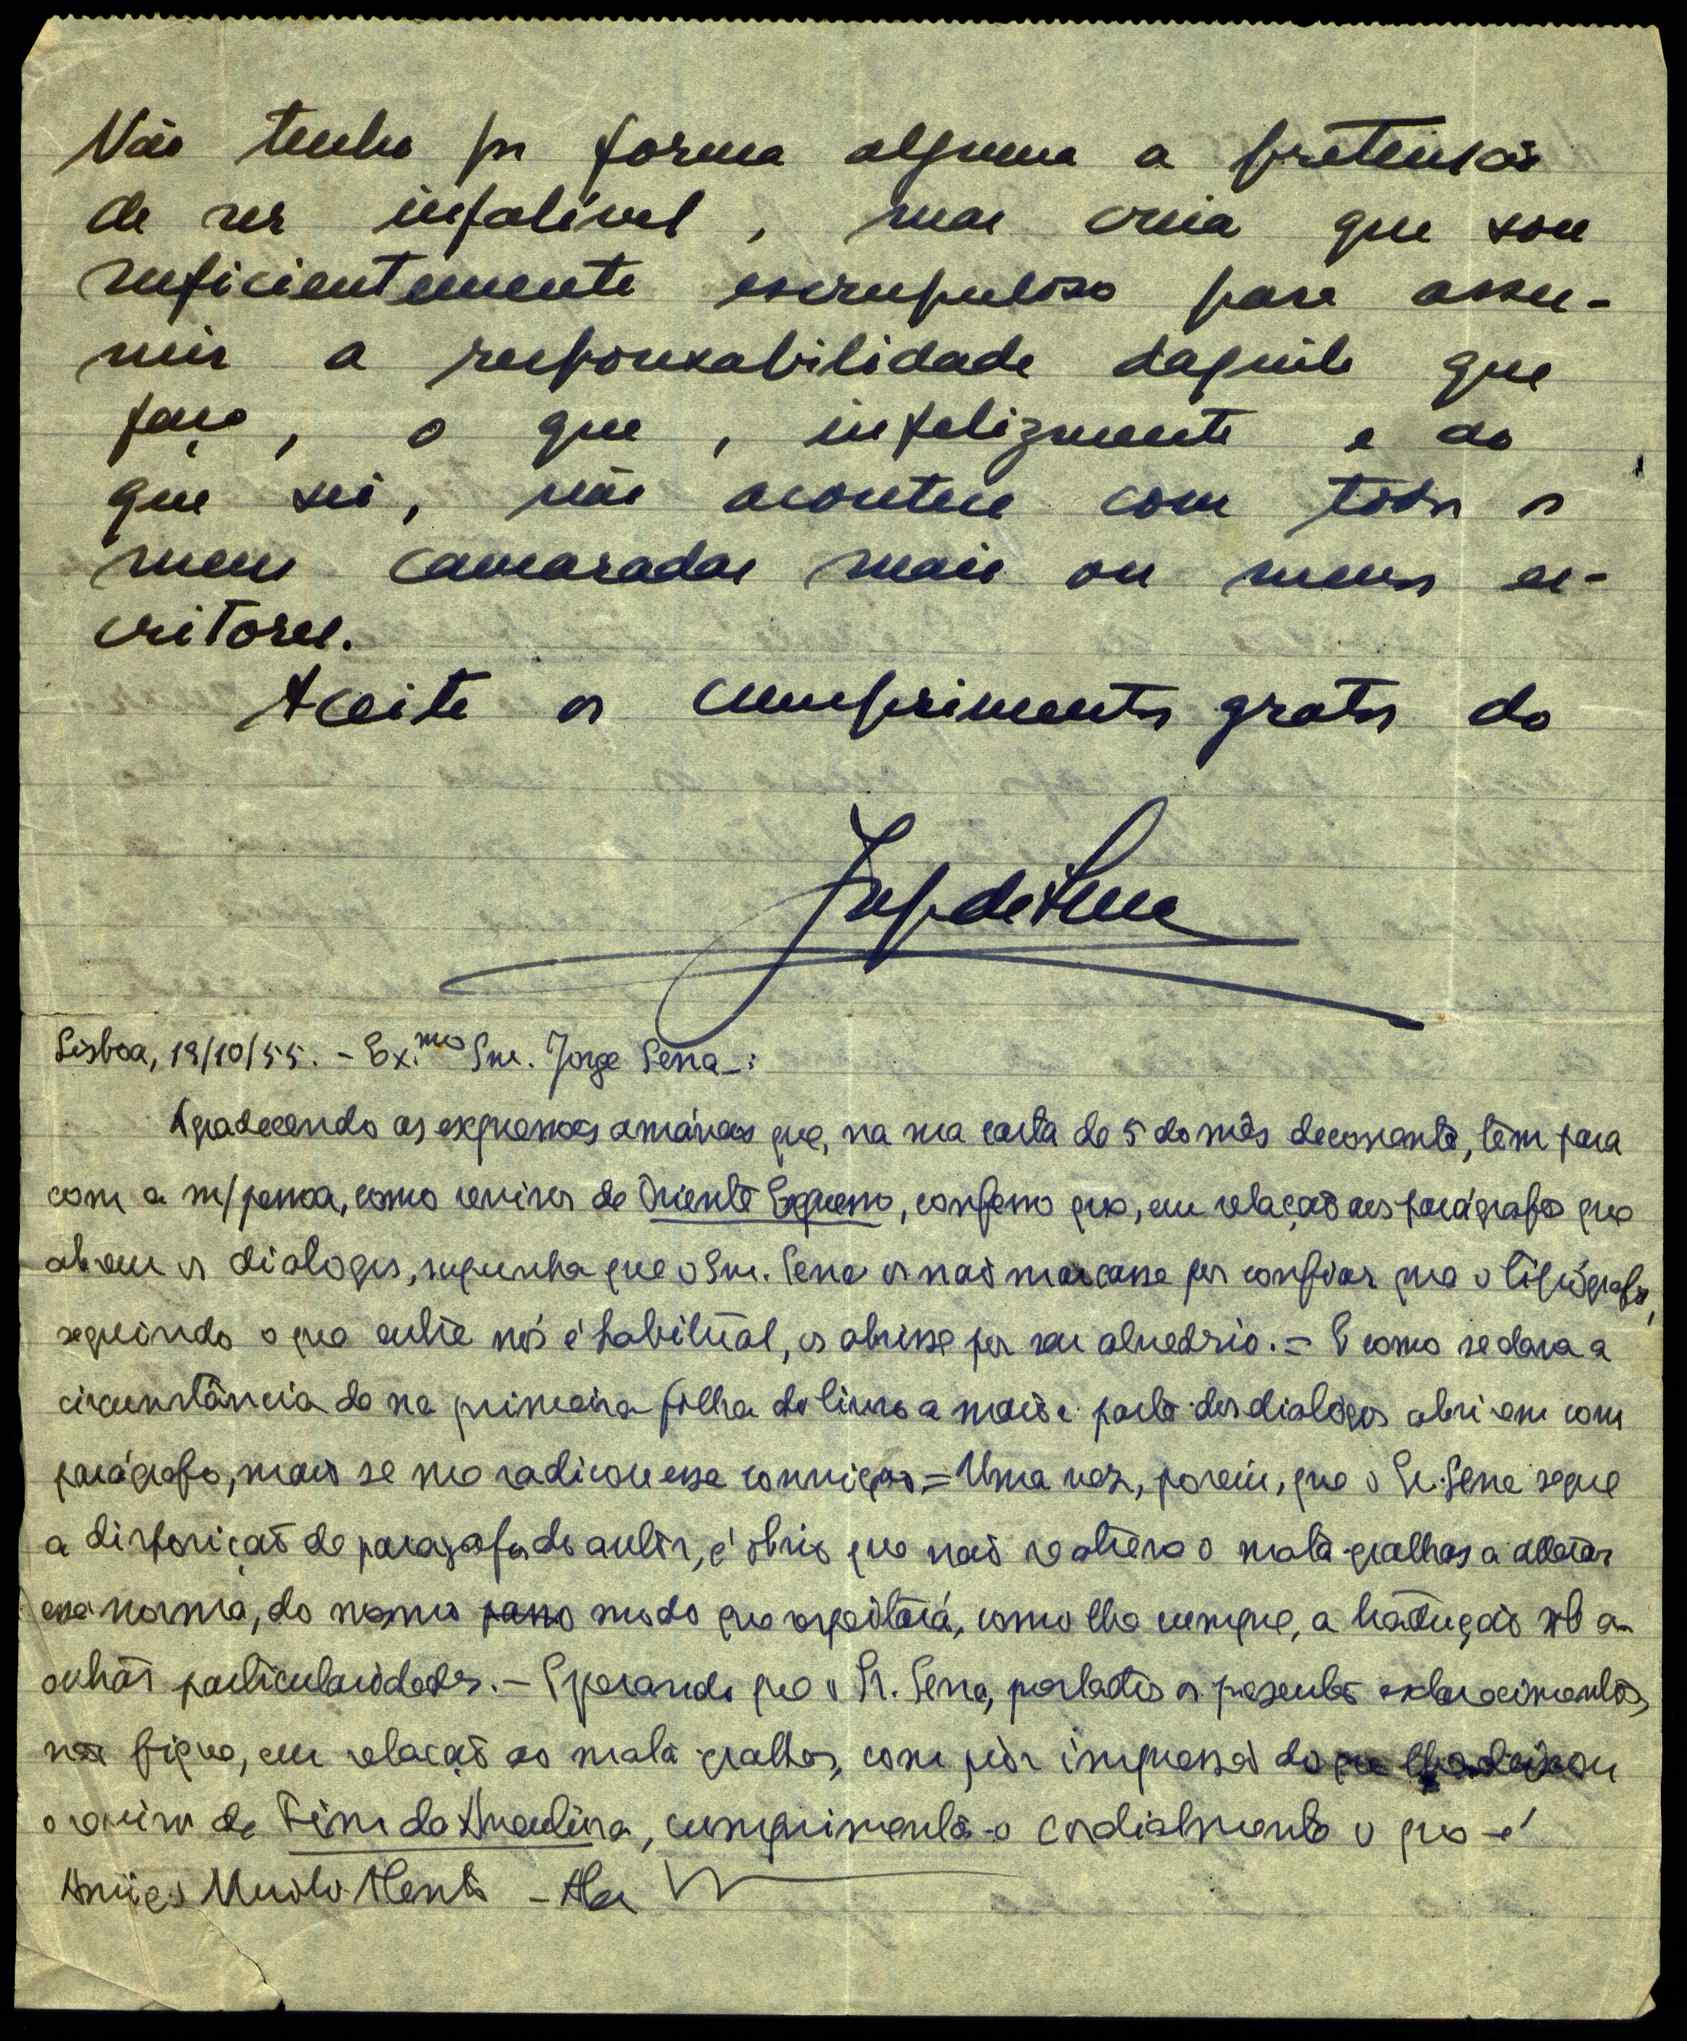 Não tenho por forma alguma a pretensão
de ser infalível, mas creia que sou
suficientemente escrupuloso para assu-
mir a responsabilidade daquilo que
faço, o que, infelizmente e ao
que sei, não acontece com todos os
meus camaradas mais ou menos es-
critores.
Aceite os cumprimentos gratos do
Jorge de Sena
Lisboa, 19/10/55. - Ex.mo Snr. Jorge Sena -:
Agradecendo as expressões amáveis que, na sua carta de 5 do mês decorrente, têm para
com a m/pessoa, como revisor de Oriente Expresso, confesso que, em relação aos parágrafos que
abrem os dialogos, supunha que o Snr. Sena os não marcasse por confiar que o tipógrafo,
seguindo o que entre nós é habitual, os abrisse por seu alvedrio. = E como se dava a
circunstância de na primeira folha do livro a maior parte dos dialogos abrirem com
parágrafo, mais se me radicou essa convicção = Uma vez, porém, que o Sr. Sena segue
a disposição de parágrafos do autor, é óbvio que não o mata-gralhas a adotar
essa norma, do mesmo passo modo que respeitará, como lhe cumpre, a tradução sob a-
outras particularidades. - Esperando que o Sr. Sena, os presentes esclarecimentos,
não fique, em relação ao mata-gralhas, com pior impressão do que lhe deixou
o revisor de Fim de Aventura, cumprimenta-o cordialmente o que é
Amigo Muito Atento -